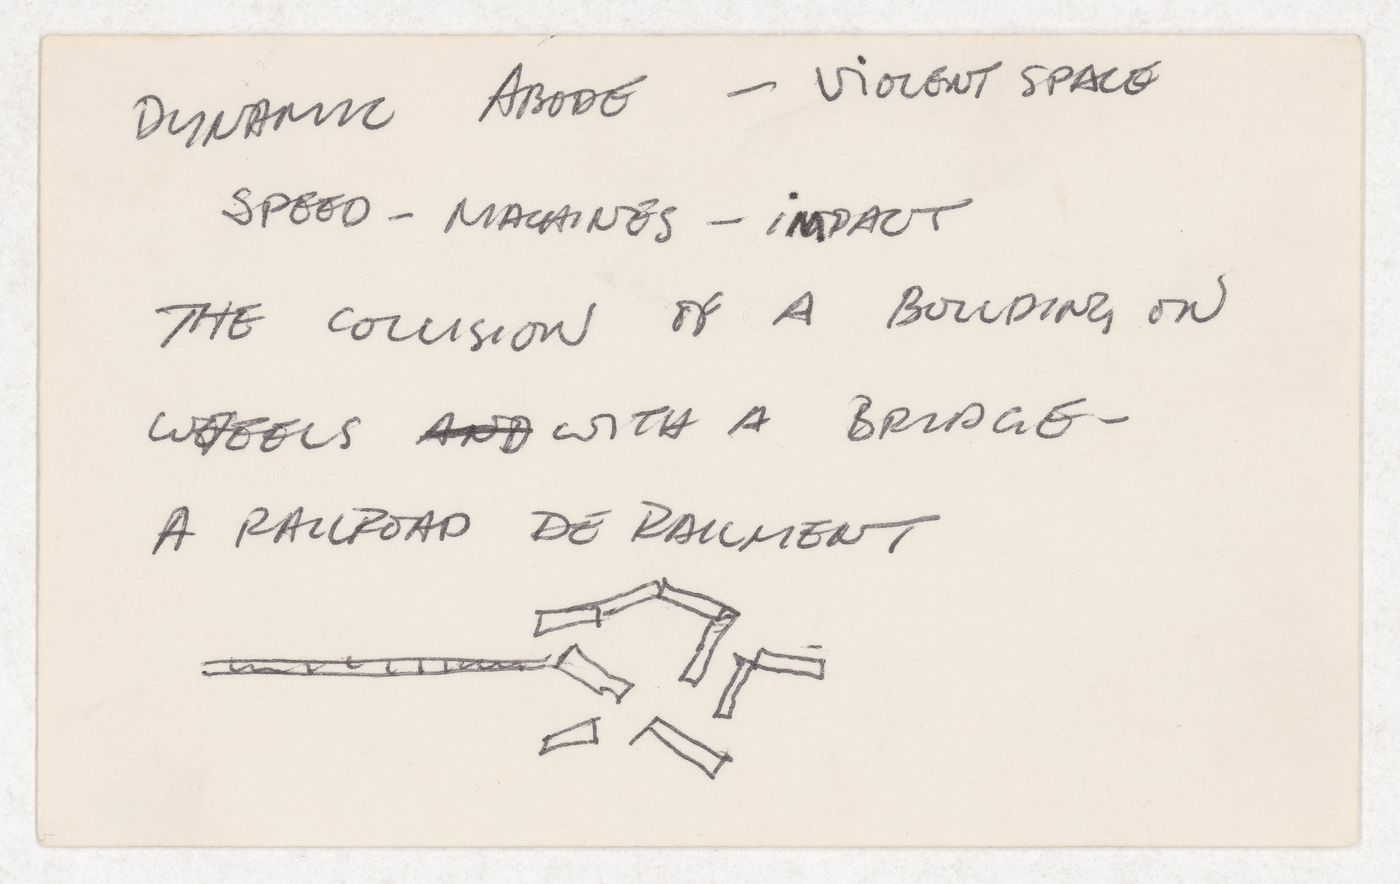 DYNAMIC ABODE – VIOLENT SPACE
SPEED – MACHINES – IMPACT
THE COLLISION OF A BUILDING ON
WHEELS AND WITH A BRIDGE –
A RAILROAD DE RAILMENT